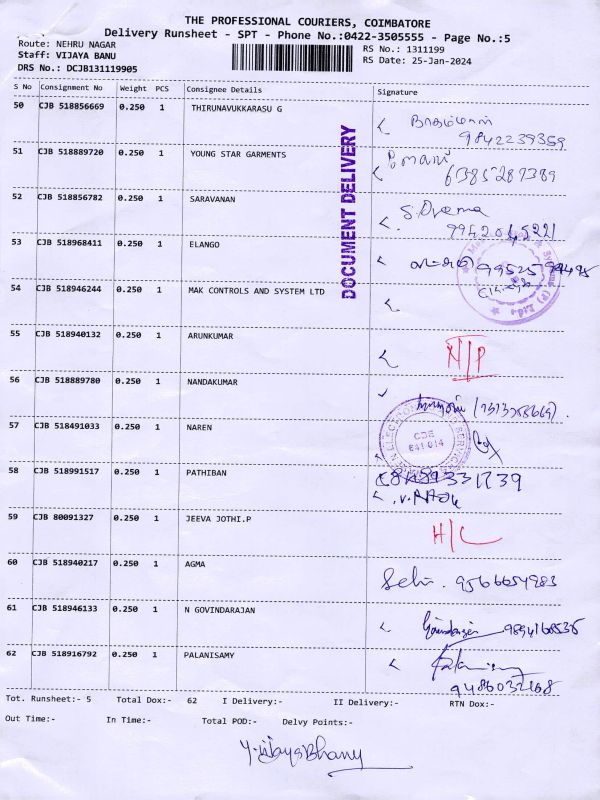 THE PROFESSIONAL COURIERS, COIMBATORE
Delivery Runsheet - SPT - Phone No.:0422-3505555 - Page No.:5
Route: NEHRU NAGAR
RS No.: 1311199
Staff: VIJAYA BANU
RS Date: 25-Jan-2024
DRS No.: DCJB131119905
S No Consignment No Weight PCS Consignee Details Signature
50 CJB 518856669 0.250 1 THIRUNAVUKKARASU G
9842239359
51 CJB 518889720 0.250 1 YOUNG STAR GARMENTS
6385287389
52 CJB 518856782 0.250 1 SARAVANAN
9942045221
53 CJB 518968411 0.250 1 ELANGO
DOCUMENT DELIVERY
54 CJB 518946244 0.250 1 MAK CONTROLS AND SYSTEM LTD
55 CJB 518940132 0.250 1 ARUNKUMAR
N/P
56 CJB 518889780 0.250 1 NANDAKUMAR
57 CJB 518491033 0.250 1 NAREN
CBE
641 014
58 CJB 518991517 0.250 1 PATHIBAN
59 CJB 80091327 0.250 1 JEEVA JOTHI.P
H/L
60 CJB 518940217 0.250 1 AGMA
9566654983
61 CJB 518946133 0.250 1 N GOVINDARAJAN
62 CJB 518916792 0.250 1 PALANISAMY
9486032168
Tot. Runsheet:- 5 Total Dox:- 62 I Delivery:- II Delivery:- RTN Dox:-
Out Time:- In Time:- Total POD:- Delvy Points:-